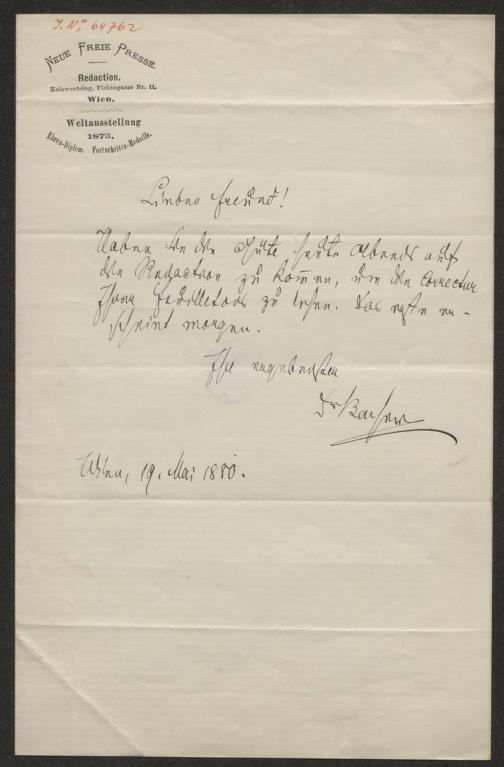 J. No 64762
NEUE FREIE PRESSE.
Redaction.
Kolowratring, Fichtegasse Nr. 11.
Wien.
Weltausstellung
1873.
Ehren-Diplom. Fortschritts-Medaille.
Lieber Freund!
Haben Sie die Güte heute Abends auf
die Redaction zu kommen, um die Correctur
Ihres Feuilletons zu lesen. Das erste er-
scheint morgen.
Ihr ergebenster
Dr Bacher
Wien, 19. Mai 1880.